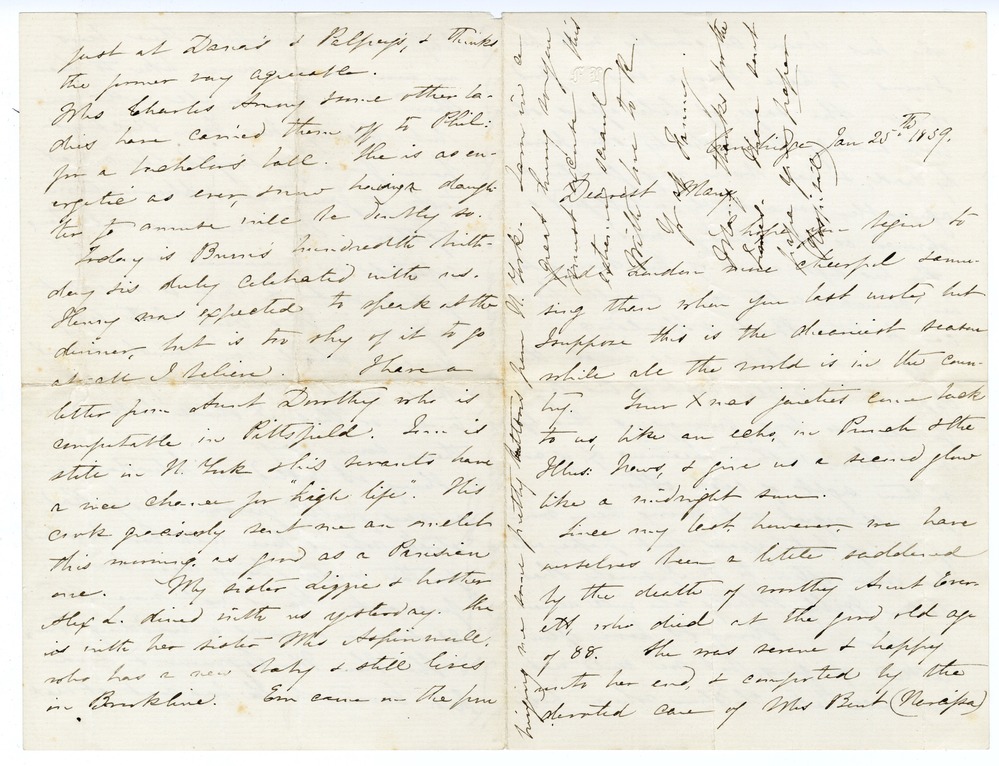 Cambridge Jan 25th 1859.
Dearest Mary
I hope you begin to
find London more cheerful & amu-
sing than when you last wrote, but
I suppose this is the dreariest season
while all the world is in the coun-
try. Your Xmas gaieties come back
to us, like an echo, in Punch & the
Illus: News, & give us a second glow
like a midnight sun.
Since my last, however, we have
ourselves been a little saddened
by the death of worthy Aunt Ever-
ett, who died at the good old age
of 88. She was serene & happy
unto her end, & comforted by the
devoted care of Mrs Bent (Narcissa)
just at Dana's & Palfrey's, & thinks
the former very agreeable.
Mrs Charles Amory & some other la-
dies have carried them off to Phil:
for a bachelors ball. She is as en-
ergetic as ever, & now having a daugh-
ter to amuse will be doubly so.
Today is Burns hundredth birth-
day & is duly celebrated with us.
Henry was expected to speak at the
dinner, but is too shy of it to go
at all I believe. I have a
letter from Aunt Dorothy who is
comfortable in Pittsfield. Tom is
still in N. York & his servants have
a nice chance for "high life". His
cook graciously sent me an omelet
this morning, as good as a Parisian
one. My sister Lizzie & brother
Alex L. dined with us yesterday. She
is with her sister Mrs Aspinwall,
who has a new baby & still lives
in Brookline. Em came on the pre
bringing me some pretty buttons from N. York. I am in a
great hurry so you
must excuse this
With love to R.
Yr Fanny.
thanks for the
have sent